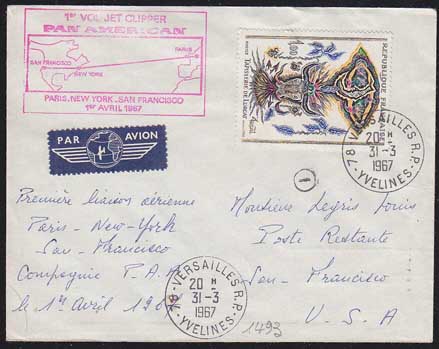 1er VOL JET CLIPPER
PAN AMERICAN
PARIS
SAN FRANCISCO
NEW YORK
PARIS. NEW YORK. SAN FRANCISCO
1er AVRIL 1967
REPUBLIQUE FRANCAISE
1,00
TAPISSERIE DE LURÇAT
78-VERSAILLES R.P.
20 H
31-3
1967
YVELINES
PAR AVION
1
Première liaison aérienne
Paris - New-York
San-Francisco
Compagnie P.A.A
le 1er Avril 1967
Monsieur Legris Louis
Poste Restante
San-Francisco
U.S.A
78-VERSAILLES R.P.
20 H
31-3
1967
YVELINES
1493